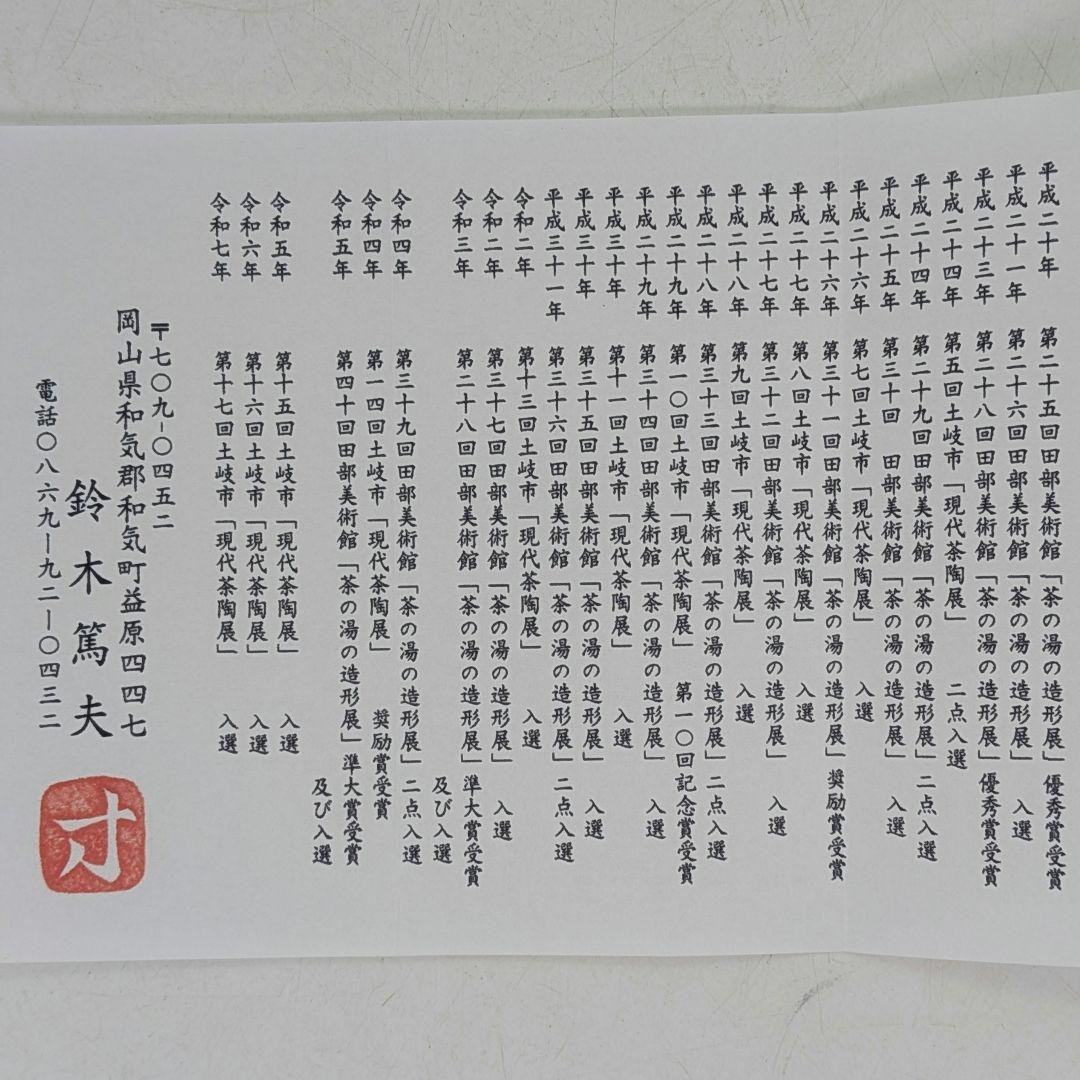 平成二十年 第二十五回田部美術館「茶の湯の造形展」優秀賞受賞
平成二十一年 第二十六回田部美術館「茶の湯の造形展」 入選
平成二十三年 第二十八回田部美術館「茶の湯の造形展」優秀賞受賞
平成二十四年 第五回土岐市「現代茶陶展」 二点入選
平成二十四年 第二十九回田部美術館「茶の湯の造形展」二点入選
平成二十五年 第三十回 田部美術館「茶の湯の造形展」 入選
平成二十六年 第七回土岐市「現代茶陶展」 入選
平成二十六年 第三十一回田部美術館「茶の湯の造形展」奨励賞受賞
平成二十七年 第八回土岐市「現代茶陶展」 入選
平成二十七年 第三十二回田部美術館「茶の湯の造形展」 入選
平成二十八年 第九回土岐市「現代茶陶展」 入選
平成二十八年 第三十三回田部美術館「茶の湯の造形展」二点入選
平成二十九年 第一〇回土岐市「現代茶陶展」 第一〇回記念賞受賞
平成二十九年 第三十四回田部美術館「茶の湯の造形展」 入選
平成三十年 第十一回土岐市「現代茶陶展」 入選
平成三十年 第三十五回田部美術館「茶の湯の造形展」 入選
平成三十一年 第三十六回田部美術館「茶の湯の造形展」二点入選
令和二年 第十三回土岐市「現代茶陶展」 入選
令和二年 第三十七回田部美術館「茶の湯の造形展」 入選
令和三年 第二十八回田部美術館「茶の湯の造形展」準大賞受賞
及び入選
令和四年 第三十九回田部美術館「茶の湯の造形展」二点入選
令和四年 第一四回土岐市「現代茶陶展」 奨励賞受賞
令和五年 第四十回田部美術館「茶の湯の造形展」準大賞受賞
及び入選
令和五年 第十五回土岐市「現代茶陶展」 入選
令和六年 第十六回土岐市「現代茶陶展」 入選
令和七年 第十七回土岐市「現代茶陶展」 入選
〒七〇九-〇四五二
岡山県和気郡和気町益原四四七
鈴木篤夫
電話〇八六九―九二―〇四三二